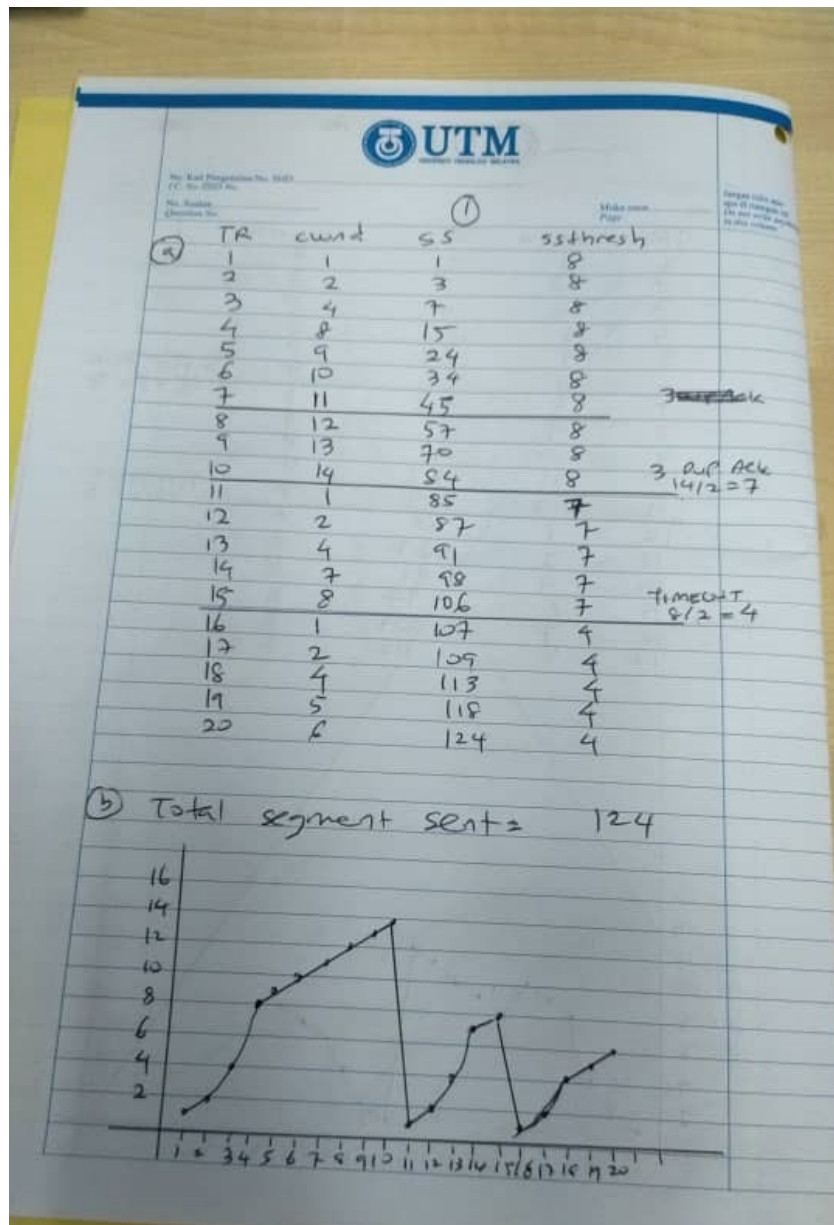 UTM
UNIVERSITI TEKNOLOGI MALAYSIA
No. Kad Pengenalan/No. ISID
I/C. No./ISID No.
No. Soalan
Question No.
1
Muka surat
Page
Jangan tulis apa-
apa di ruangan ini
Do not write anything
in this column
a TR cwnd SS ssthresh
1 1 1 8
2 2 3 8
3 4 7 8
4 8 15 8
5 9 24 8
6 10 34 8
7 11 45 8
8 12 57 8
9 13 70 8
10 14 84 8 3 Dup Ack
14/2=7
11 1 85 7
12 2 87 7
13 4 91 7
14 7 98 7
15 8 106 7 TIMEOUT
8/2=4
16 1 107 4
17 2 109 4
18 4 113 4
19 5 118 4
20 6 124 4
b Total segment sent = 124
16
14
12
10
8
6
4
2
1 2 3 4 5 6 7 8 9 10 11 12 13 14 15 16 17 18 19 20